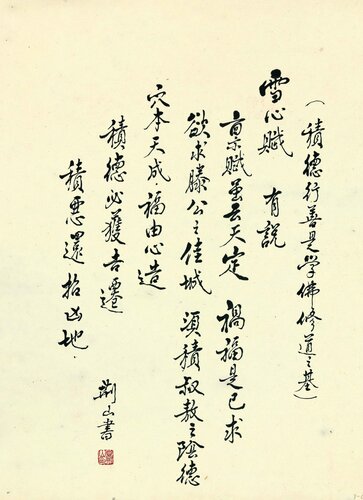 (積德行善是學佛修道之基)
雪心賦 有説
稟賦虽云天定 禍福是己求
欲求滕公之佳城 須積叔敖之陰德
穴本天成·福由心造
積德必獲吉遷
積惡還招凶地·
荆山書